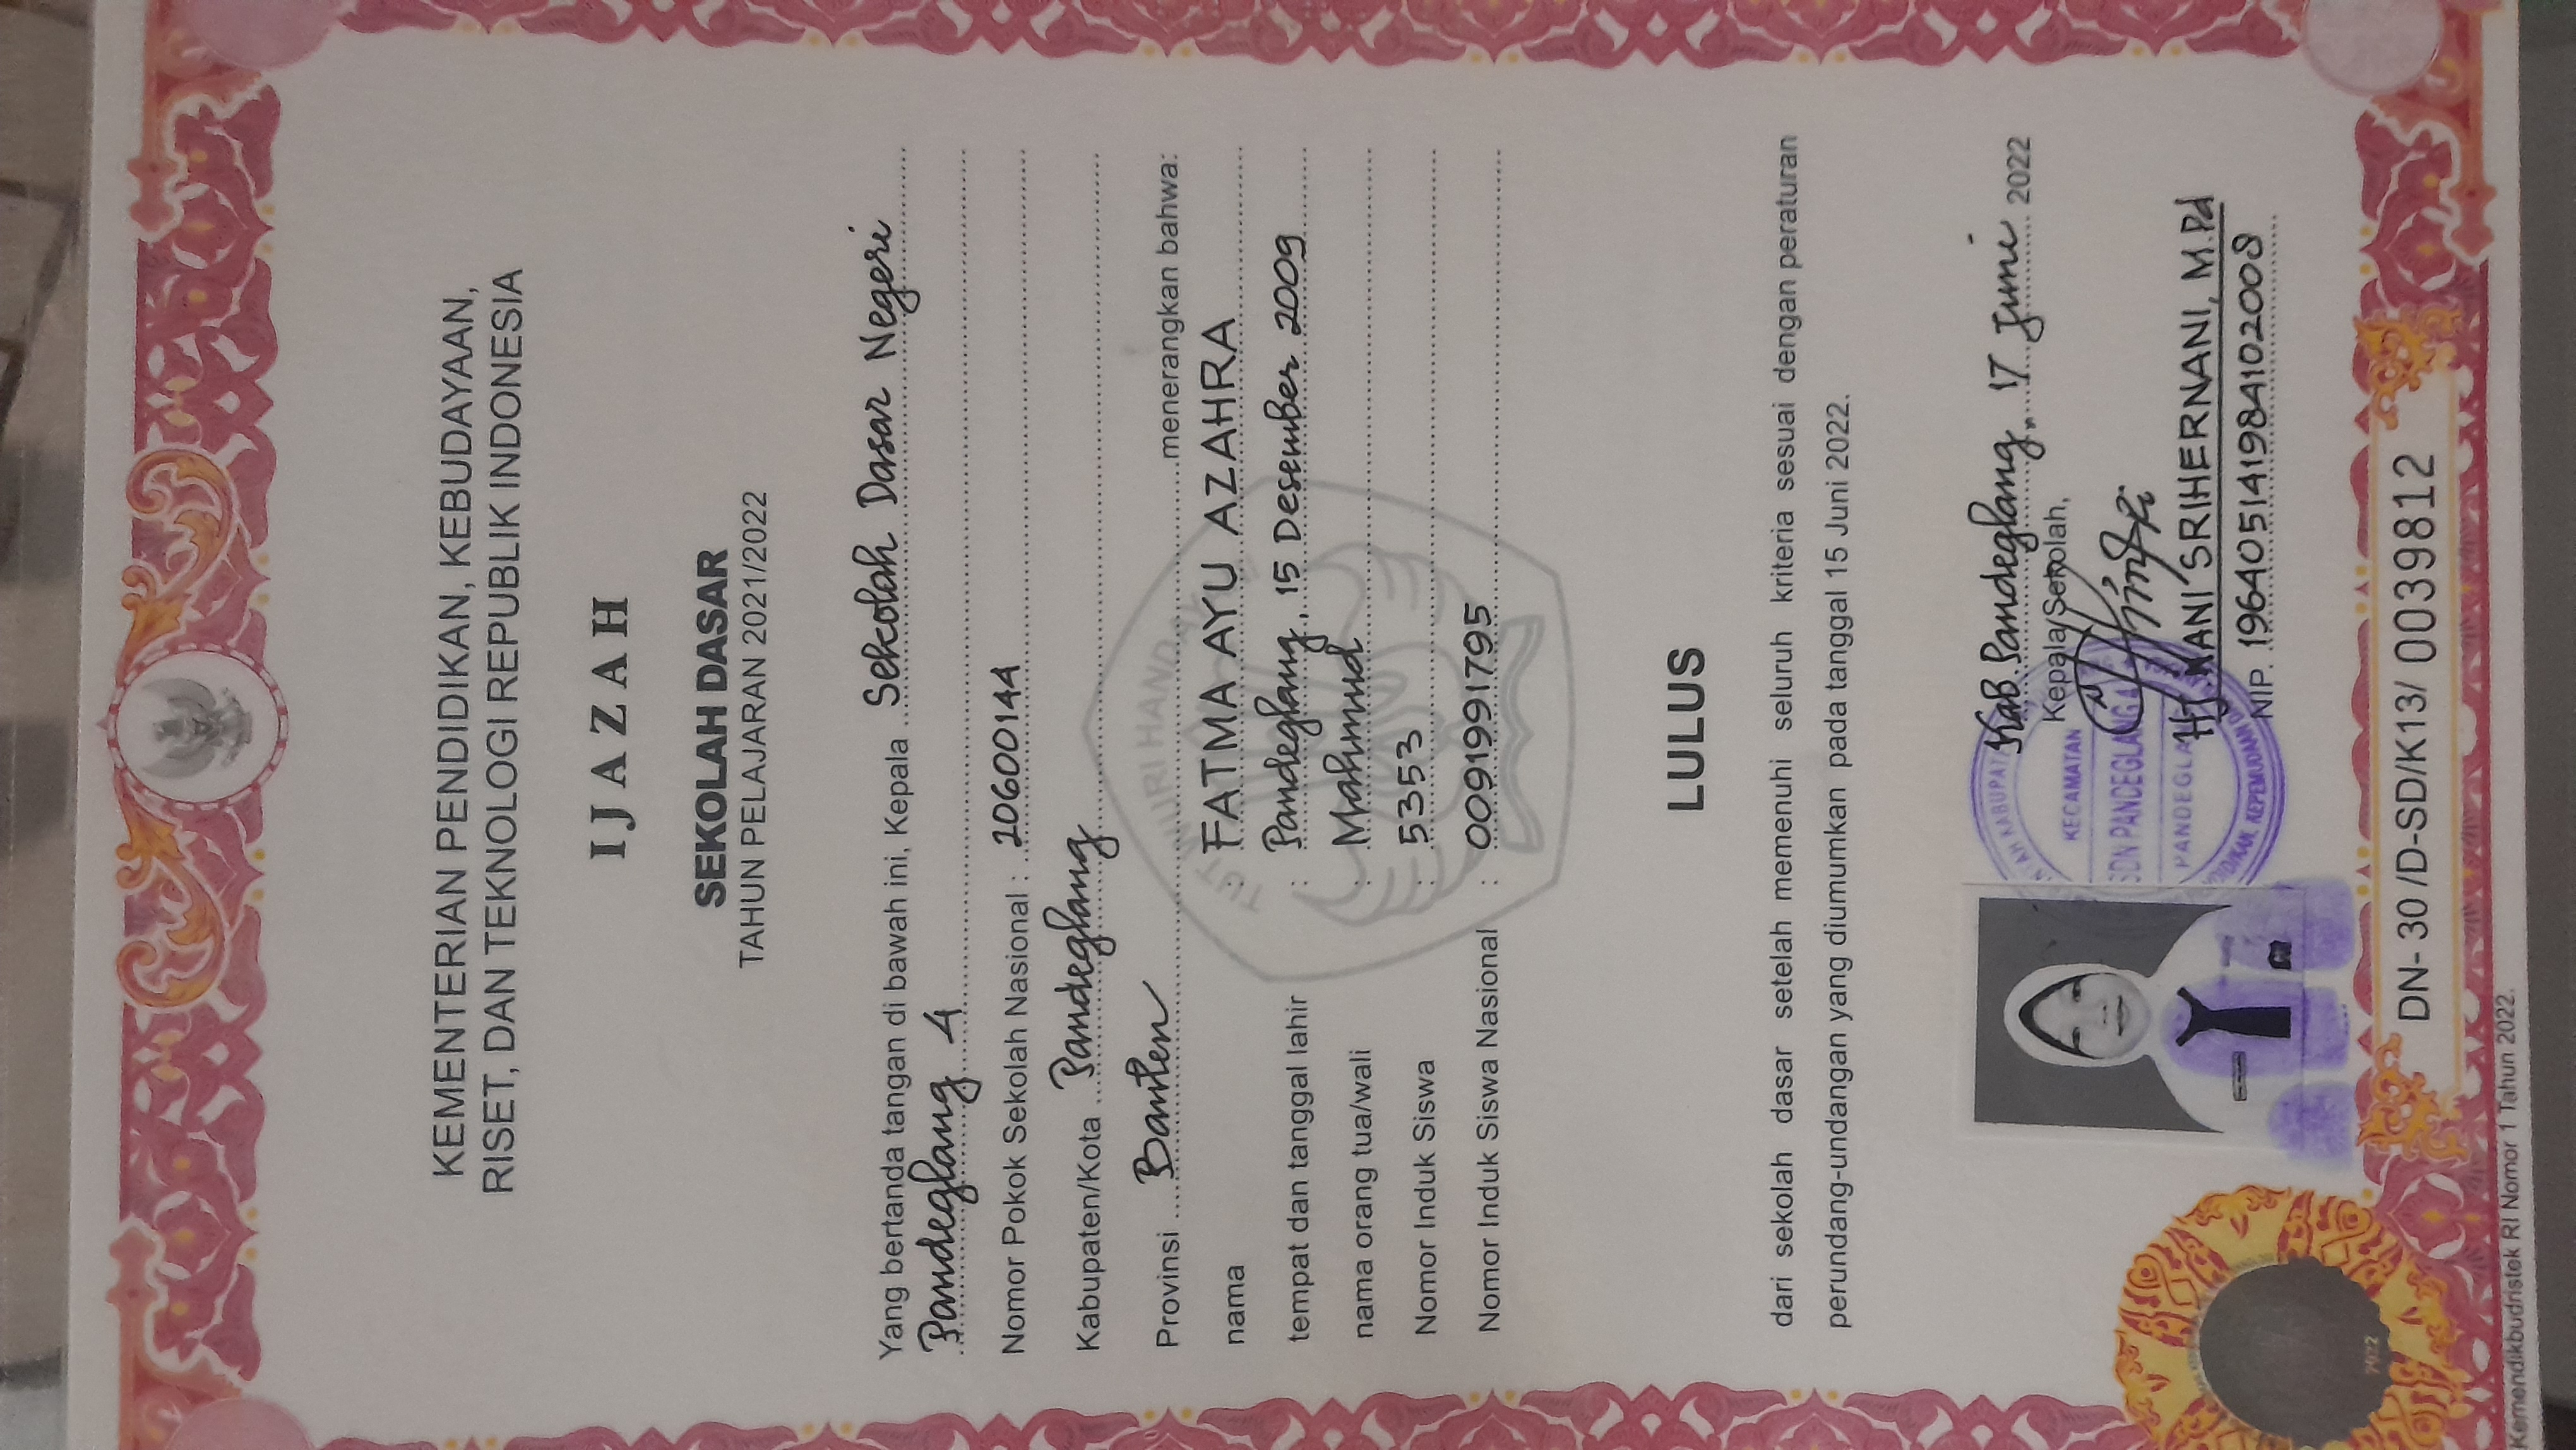 KEMENTERIAN PENDIDIKAN, KEBUDAYAAN,
RISET, DAN TEKNOLOGI REPUBLIK INDONESIA
IJAZAH
SEKOLAH DASAR
TAHUN PELAJARAN 2021/2022
Yang bertanda tangan di bawah ini, Kepala Sekolah Dasar Negeri
Pandeglang 4
Nomor Pokok Sekolah Nasional : 20600144
Kabupaten/Kota Pandeglang
Provinsi Banten menerangkan bahwa:
TUT WURI HANDAYANI
nama : FATMA AYU AZAHRA
tempat dan tanggal lahir : Pandeglang, 15 Desember 2009
nama orang tua/wali : Mahmud
Nomor Induk Siswa : 5353
Nomor Induk Siswa Nasional : 0091991795
LULUS
dari sekolah dasar setelah memenuhi seluruh kriteria sesuai dengan peraturan
perundang-undangan yang diumumkan pada tanggal 15 Juni 2022.
Kab. Pandeglang, 17 Juni 2022
Kepala Sekolah,
KECAMATAN
SDN PANDEGLANG 4
HJ. NANI SRIHERNANI, M.Pd
NIP. 196405141984102008
KEPEMUDAAN
2022
DN- 30 /D-SD/K13/ 0039812
Kemendikbudristek RI Nomor 1 Tahun 2022.